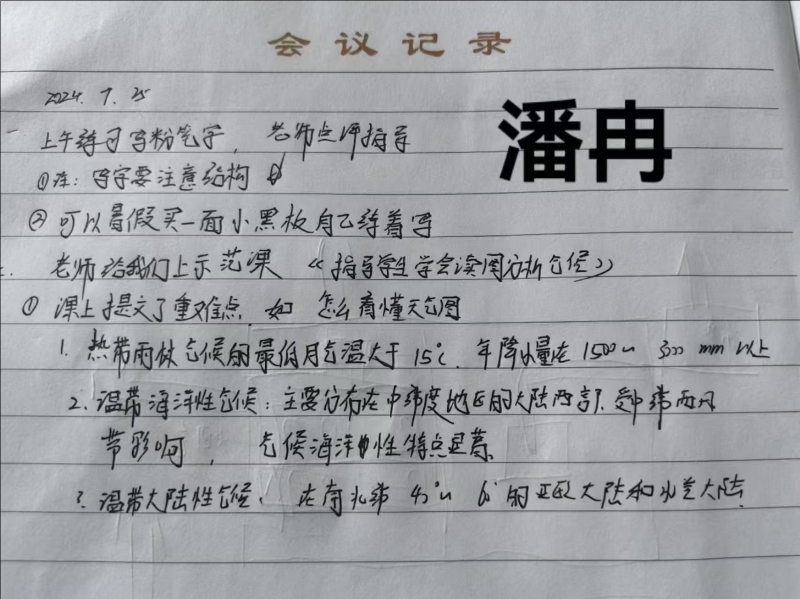 会议记录
2024.7.25
潘冉
一 上午练习写粉笔字, 老师点评指导
①注: 写字要注意结构
② 可以暑假买一面小黑板自己练着写
老师给我们上示范课 《指导学生学会读图分析气候》
① 课上提文了重难点. 如 怎么看懂天气图
1. 热带雨林气候的最低月气温大于15℃. 年降水量在1500~ 300 mm 以上
2. 温带海洋性气候: 主要分布在中纬度地区的大陆西部. 受中纬西风
节影响, 气候海洋性特点显著.
3. 温带大陆性气候. 在南北纬 40°~ 60°的亚欧大陆和北美大陆.